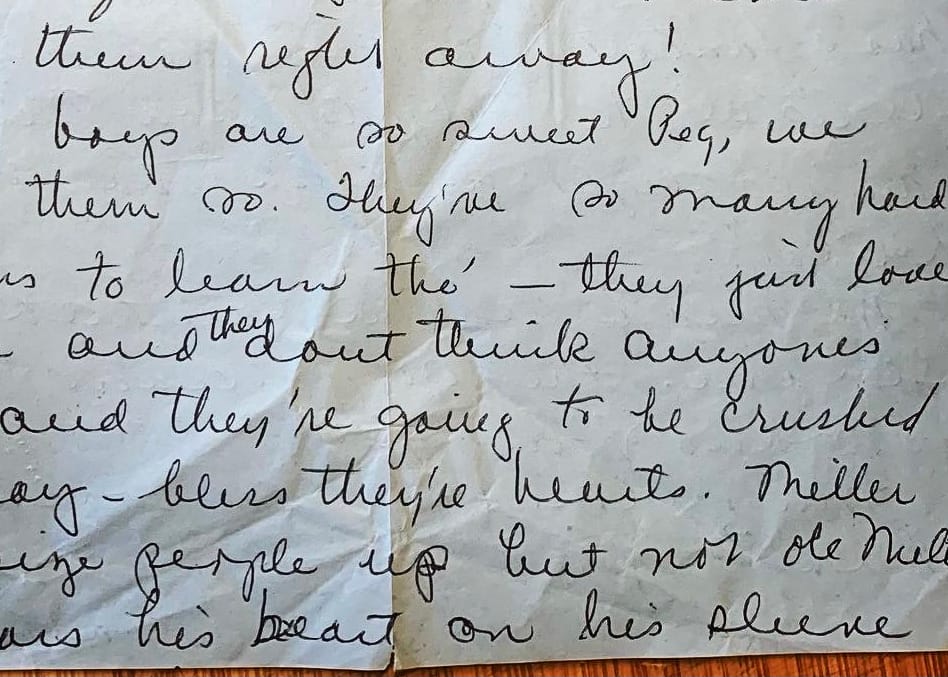 them right away!
boys are so sweet Peg, we
them so. They've so many hard
to learn tho' – they just love
and they dont think anyones
and they're going to be crushed
– bless they're hearts. Miller
size people up but not ole
his heart on his sleeve